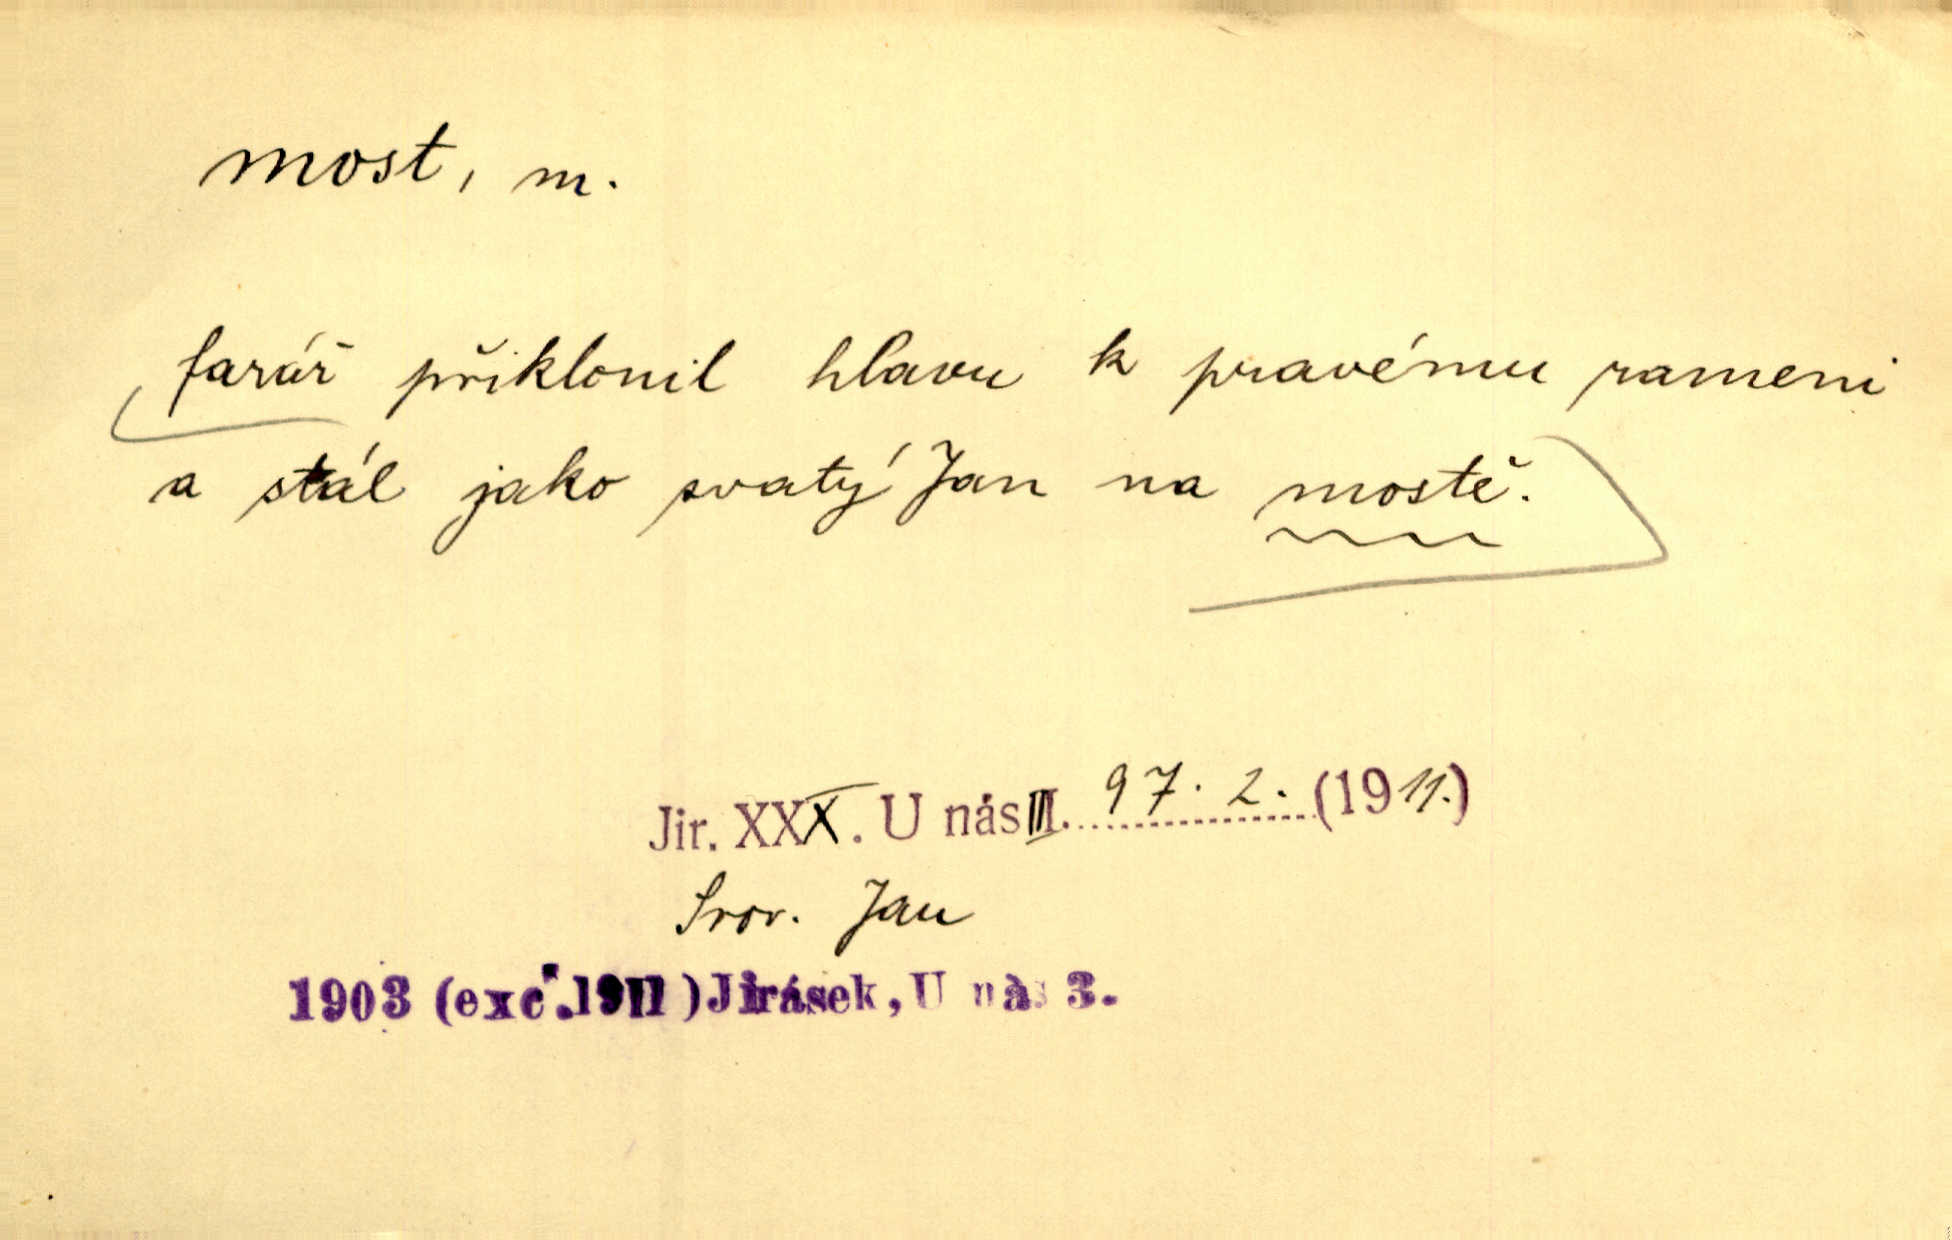 most, m.
farář přiklonil hlavu k pravému rameni
a stál jako svatý Jan na mostě.
Jir. XXX. U nás III. 97. 2. (1911.)
Srov. Jan
1903 (exc. 1911) Jirásek, U nás 3.